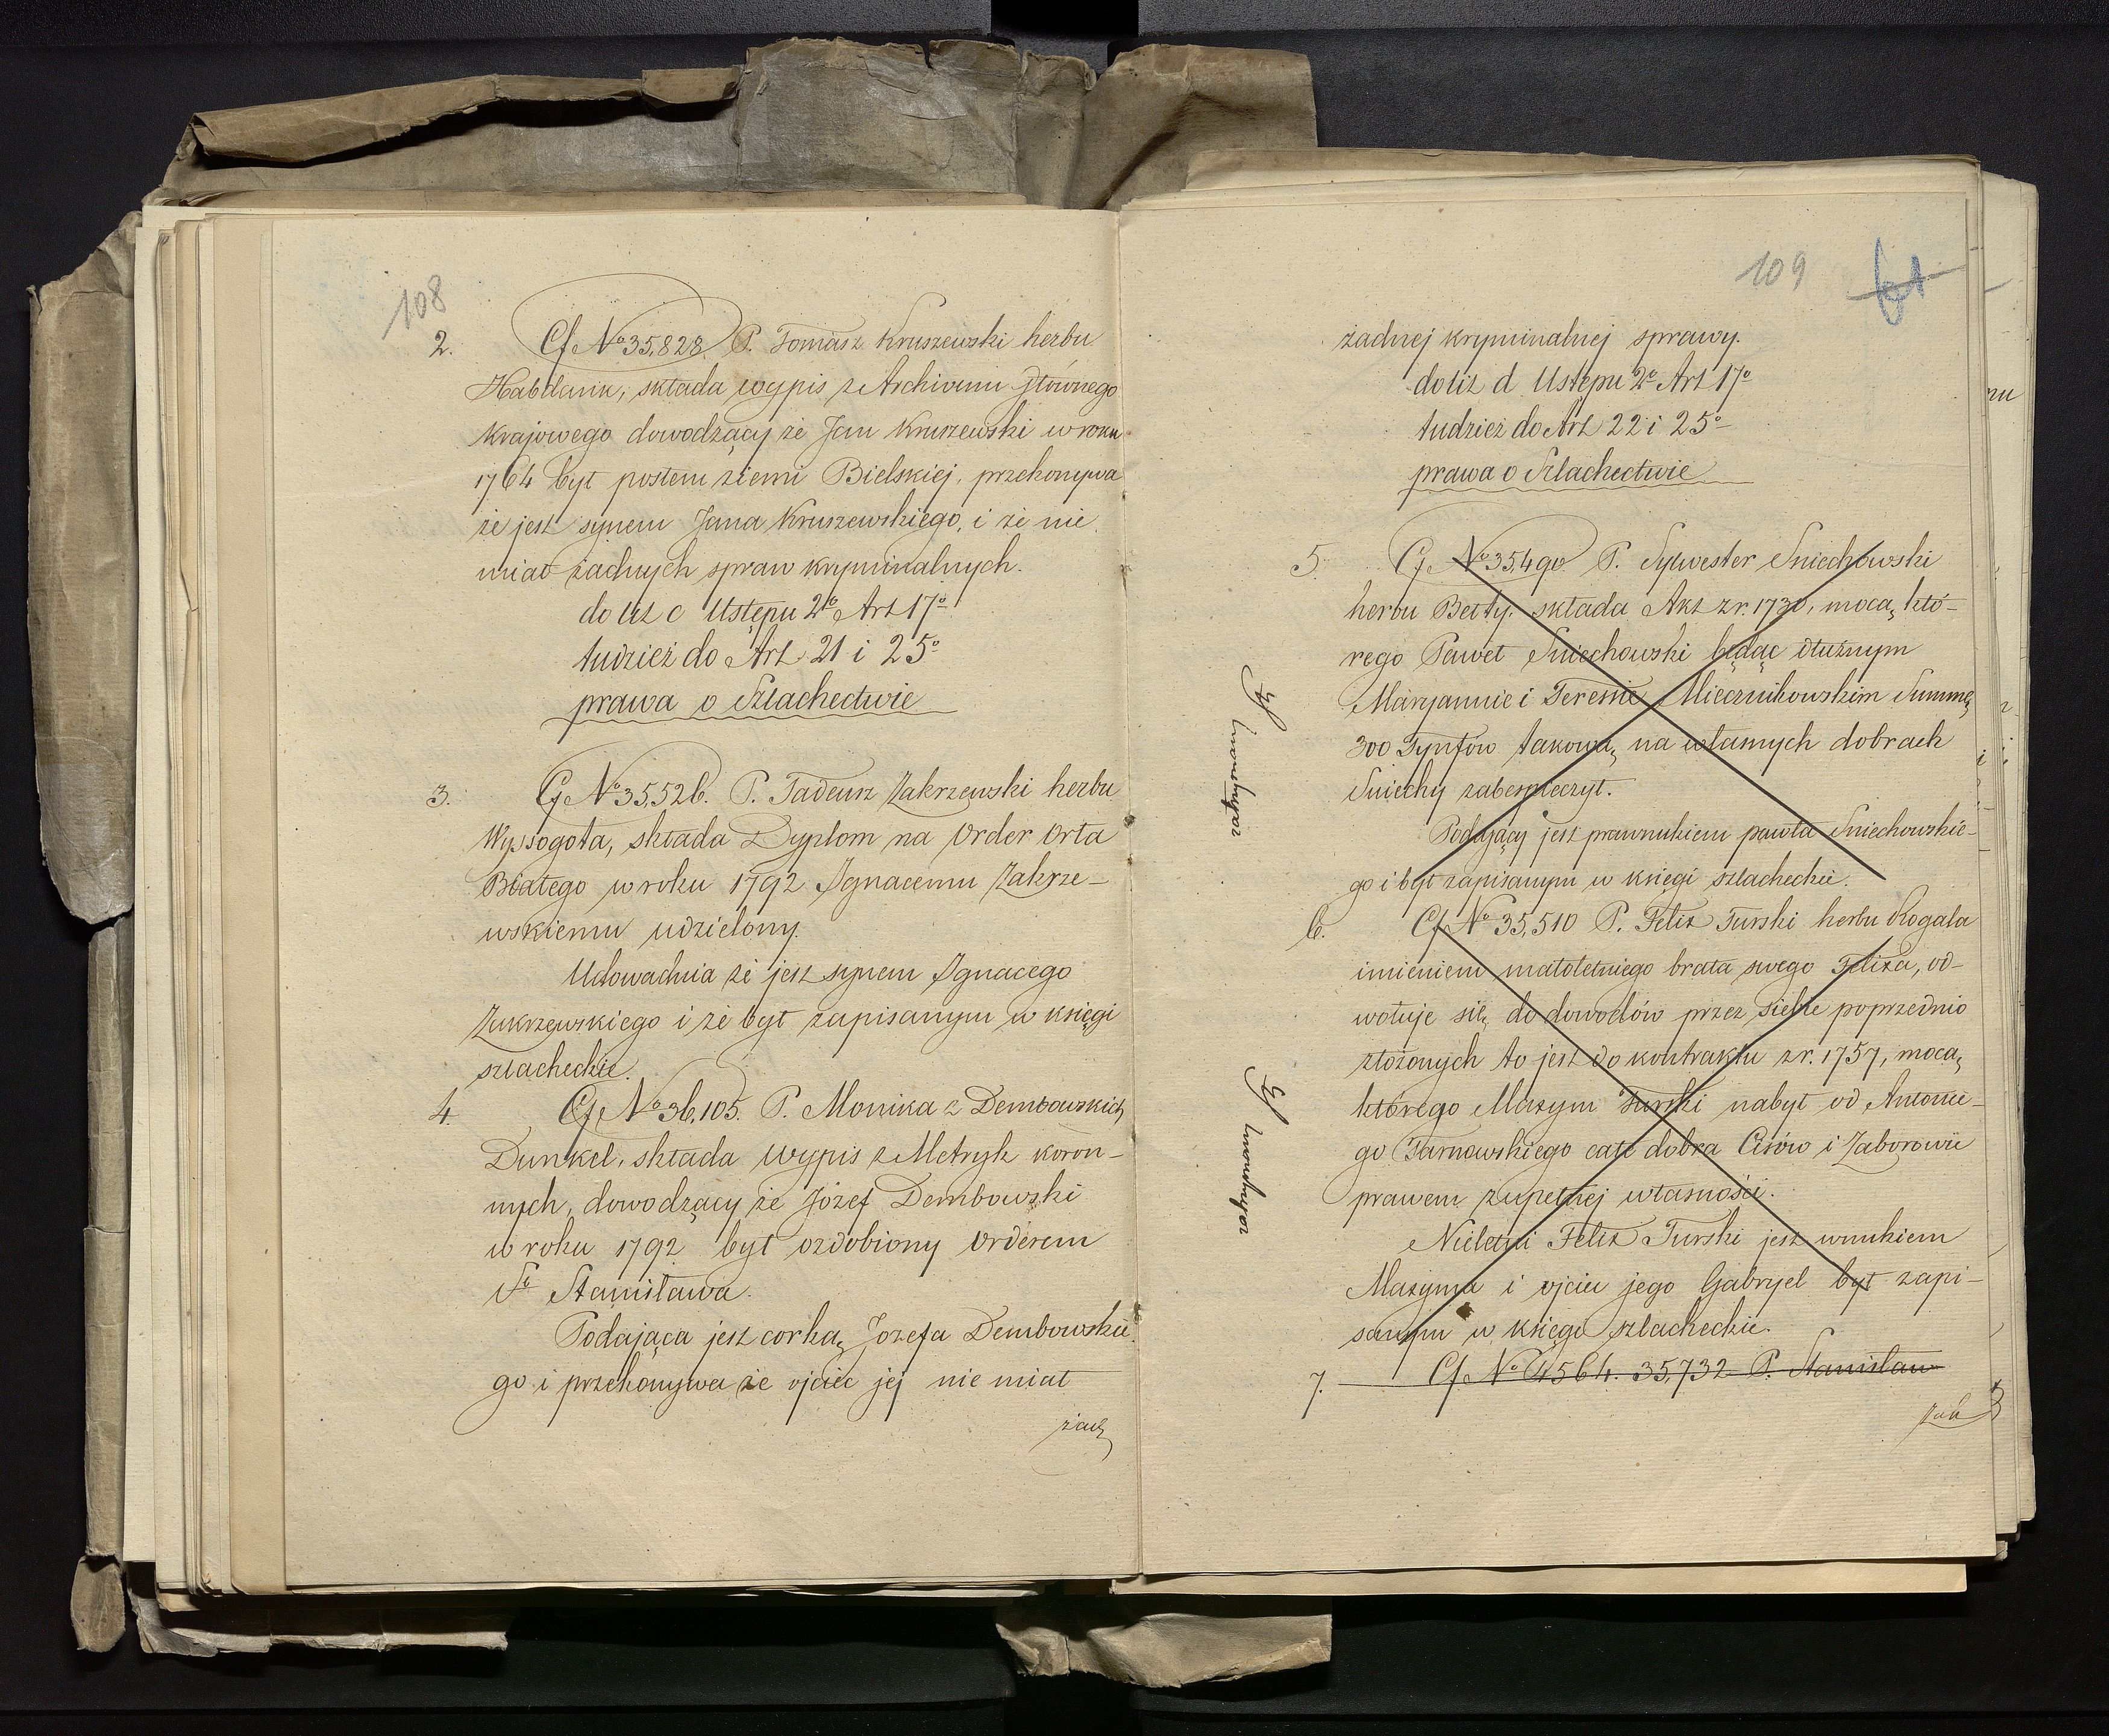 108
2. Cf No 35,828. P. Tomasz Kruszewski herbu
Habdank, składa wypis z Archivum Głównego
Krajowego dowodzący że Jan Kruszewski w roku
1764 był posłem ziemi Bielskiej, przekonywa
że jest synem Jana Kruszewskiego, i że nie
miał żadnych spraw kryminalnych.
do lit c Ustępu 2o Art 17o
tudzież do Art 21 i 25o
prawa o Szlachectwie
3. Cf No 35,526. P. Tadeusz Zakrzewski herbu
Wyssogota, składa Dyplom na Order Orła
Białego w roku 1792 Ignacemu Zakrze-
wskiemu udzielony.
Udowadnia że jest synem Ignacego
Zakrzewskiego i że był zapisanym w księgi
szlacheckie.
4. Cf No 36,105. P. Monika z Dembowskich
Dunkel, składa wypis z Metryk koron-
nych, dowodzący że Józef Dembowski
w roku 1792 był ozdobiony orderem
So Stanisława.
Podająca jest corką Jozefa Dembowskie
go i przekonywa że ojciec jej nie miał
żad
109
61
żadnej kryminalnej sprawy.
do lit d Ustępu 2o Art 17o
tudzież do Art 22 i 25o
prawa o Szlachectwie
5. Cf No 35,490 P. Sylwester Sniechowski
herbu Bełty. składa Akt z r. 1730, mocą któ-
rego Paweł Sniechowski będąc dłużnym
Maryannie i Teressie Miecznikowskim Summę
300 Tynfów takową na własnych dobrach
Sniechy zabespieczył.
Podający jest prawnukiem pawła Sniechowskie-
go i był zapisanym w księgi szlacheckie.
6. Cf No 35,510 P. Felix Turski herbu Rogala
imieniem małoletniego brata swego Felixa, od-
wołuje się do dowodów przez siebie poprzednio
złożonych to jest do kontraktu z r. 1757, mocą
którego Maxym Turski nabył od Antonie-
go Tarnowskiego całe dobra Cisów i Zaborowie
prawem zupełnej własności.
Nieletni Felix Turski jest wnukiem
Maxyma i ojciec jego Gabryel był zapi-
sanym w księgi szlacheckie.
7. Cf No 4564. 35,732 P. Stanisław